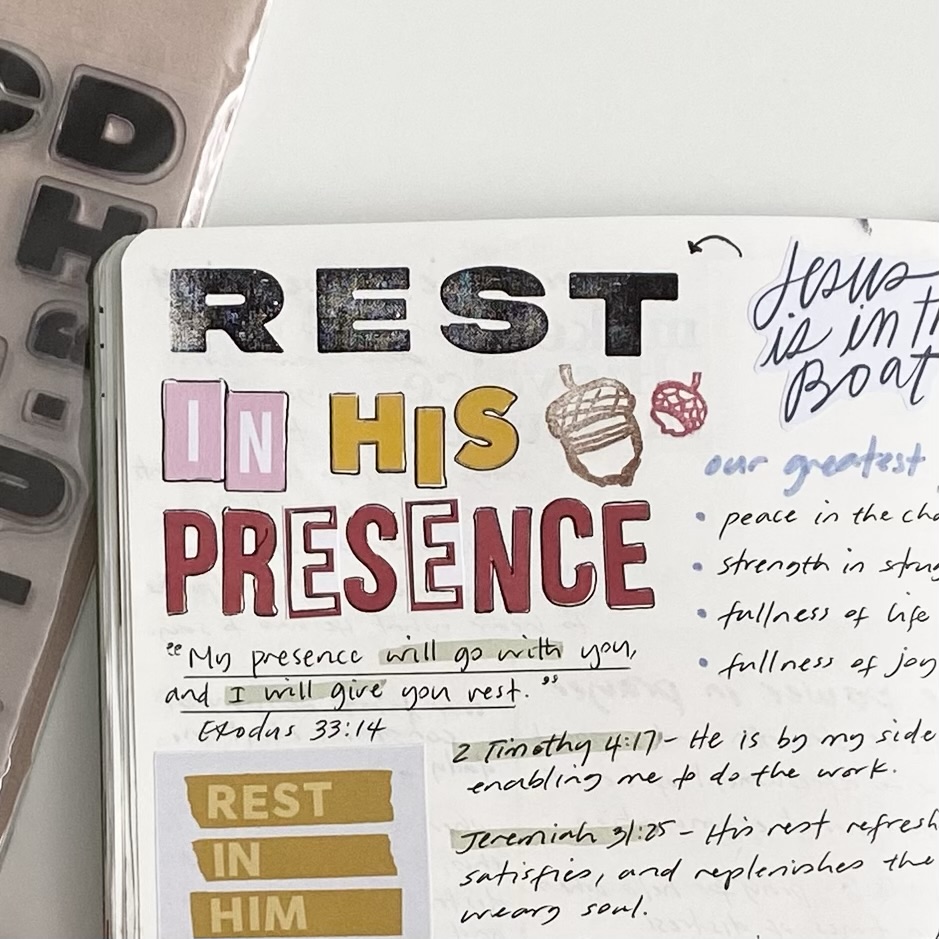 REST
IN HIS
PRESENCE
"My presence will go with you,
and I will give you rest."
Exodus 33:14
REST
IN
HIM
Jesus
is in
Boat
our greatest
peace in the
strength in
fullness of life
fullness of joy
2 Timothy 4:17 - He is by my side
enabling me to do the work.
Jeremiah 31:25 - His rest
satisfies, and replenishes the
weary soul.